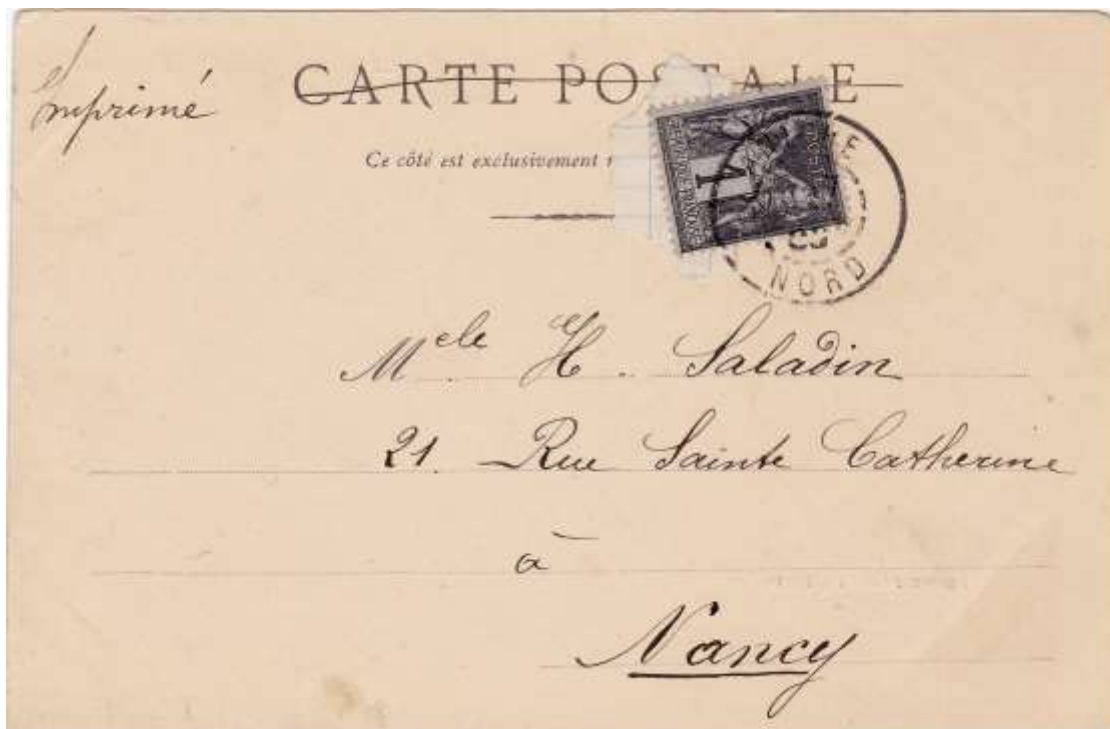 Imprimé
CARTE POSTALE
Ce côté est exclusivement
1
NORD
Melle H. Saladin
21. Rue Sainte Catherine
à
Nancy